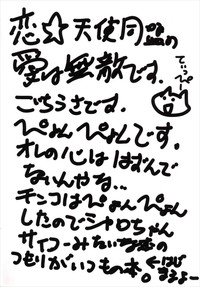 恋☆天使同盟の
愛は無敵です。
てぃっぴー
ごちうさです。
ぴょんぴょんです。
オレの心ははずんで
ないんやな…
チンコはぴょんぴょん
したのでシャロちゃん
サイコーみたいな本の
つもりがいつもの本。
←はじまるよー